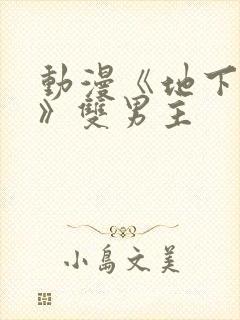 動漫《地下
》雙男主
小島文美